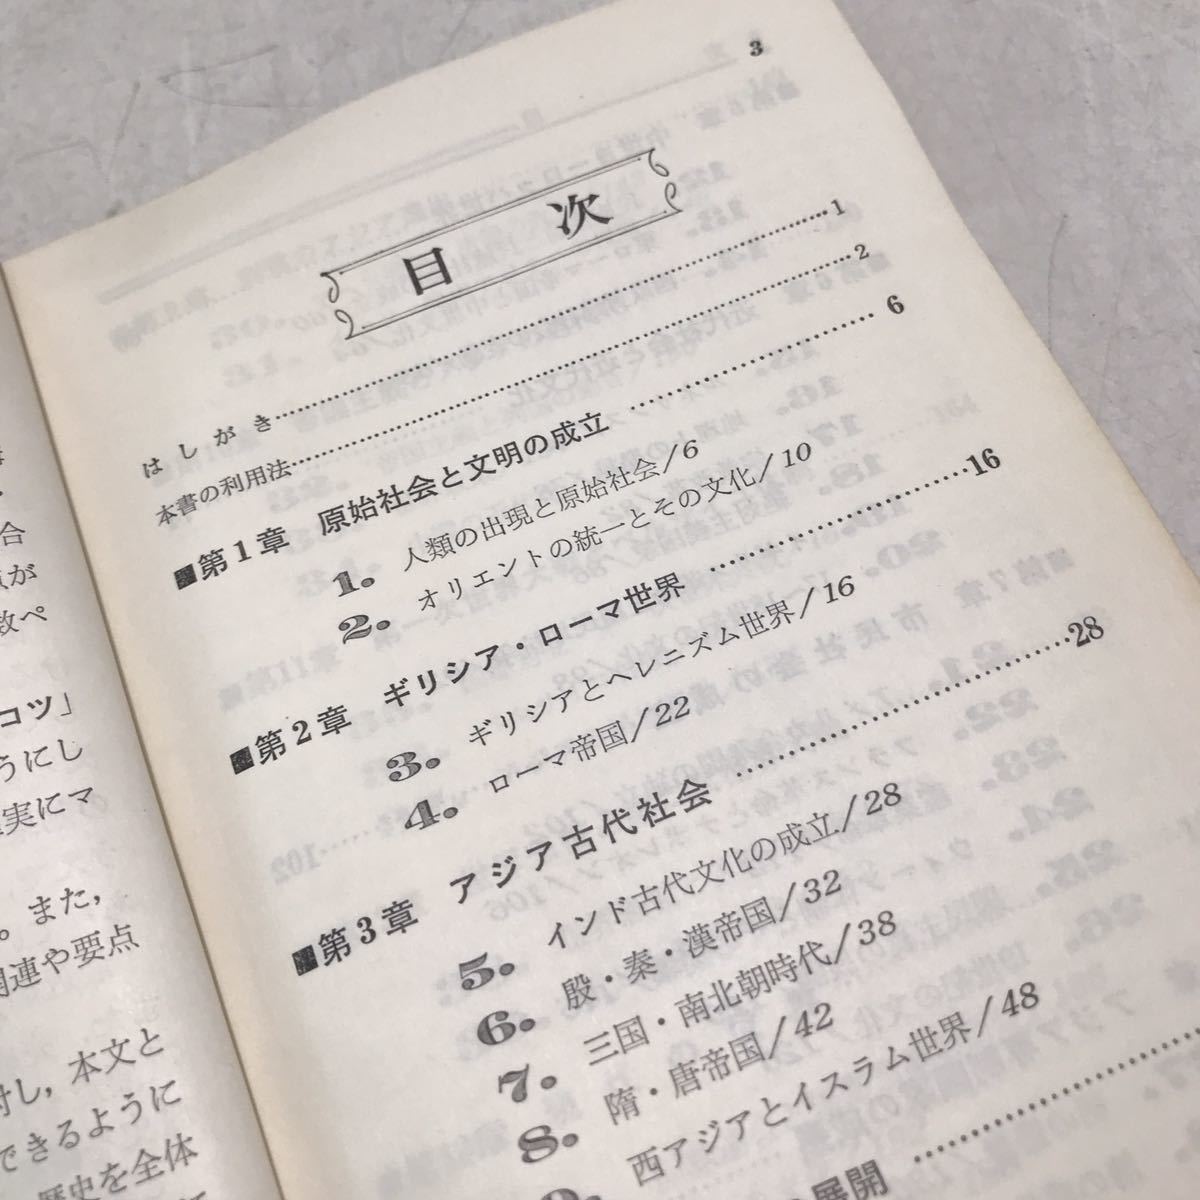 3
目次
はしがき……1
本書の利用法……2
■第1章 原始社会と文明の成立……6
1. 人類の出現と原始社会/6
2. オリエントの統一とその文化/10
■第2章 ギリシア・ローマ世界……16
3. ギリシアとヘレニズム世界/16
4. ローマ帝国/22
■第3章 アジア古代社会……28
5. インド古代文化の成立/28
6. 殷・秦・漢帝国/32
7. 三国・南北朝時代/38
8. 隋・唐帝国/42
9. 西アジアとイスラム世界/48
展開……
合
が
数ペ
コツ」
うにし
実にマ
。また，
関連や要点
対し，本文と
できるように
歴史を全体